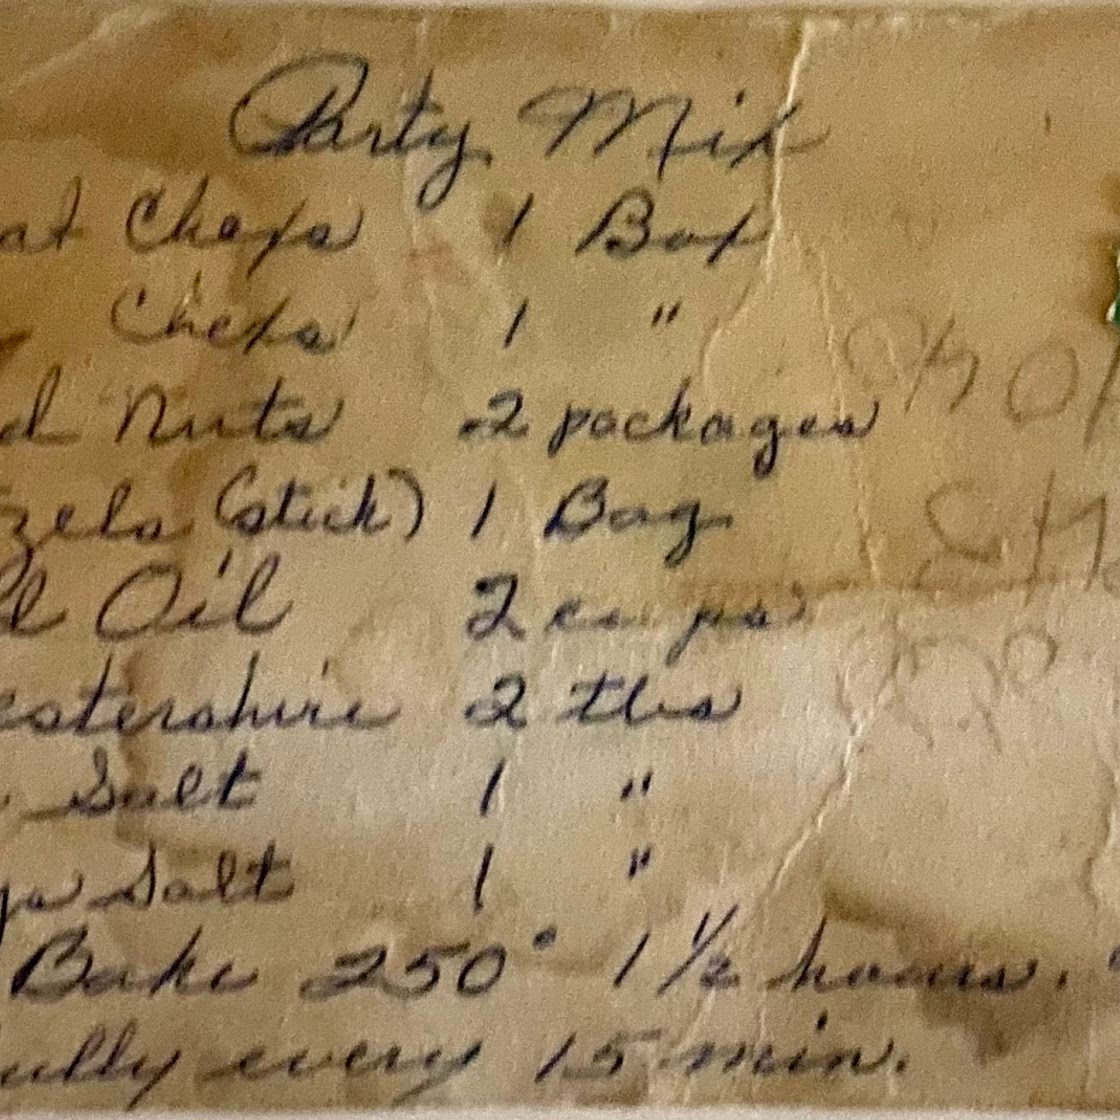 Party Mix
at Chexs 1 Box
Chexs 1 "
d Nuts 2 packages
zels (stick) 1 Bag
d Oil 2 cups
estershire 2 tbs
Salt 1 "
Salt 1 "
Bake 250° 1 1/2 hours.
fully every 15 min.